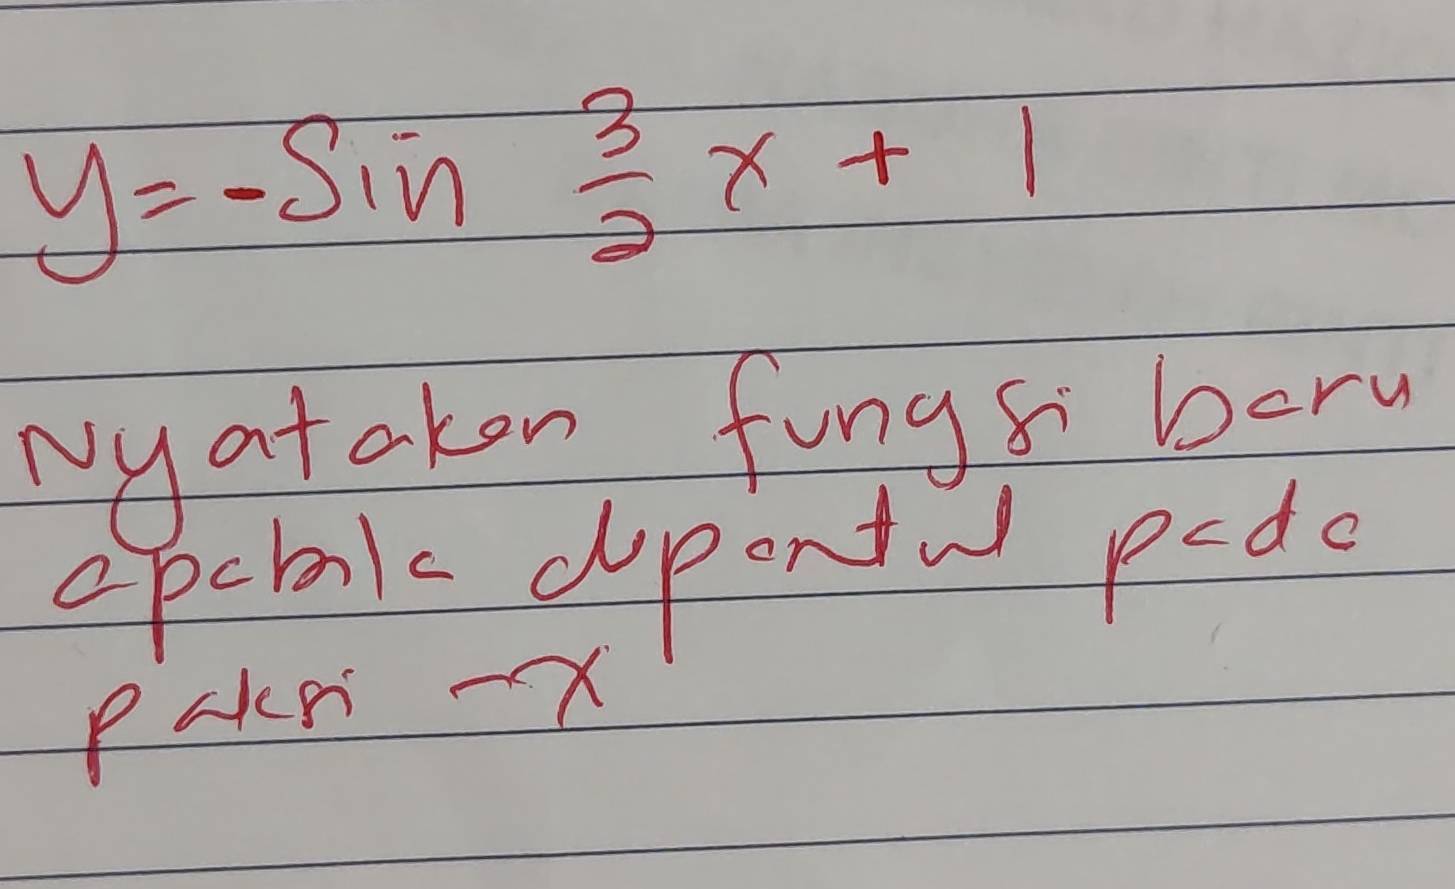 y = -Sin 3/2 x + 1
Nyatakan fungsi baru
apabila dipantul pada
paksi -x